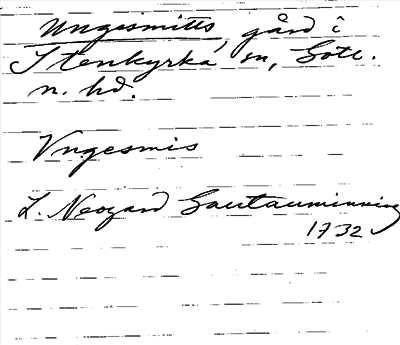 Ungesmitts, gård i
Stenkyrka sn, Gotl.
n. hd.
Vngesmis
L. Neogard Gautauminning
1732